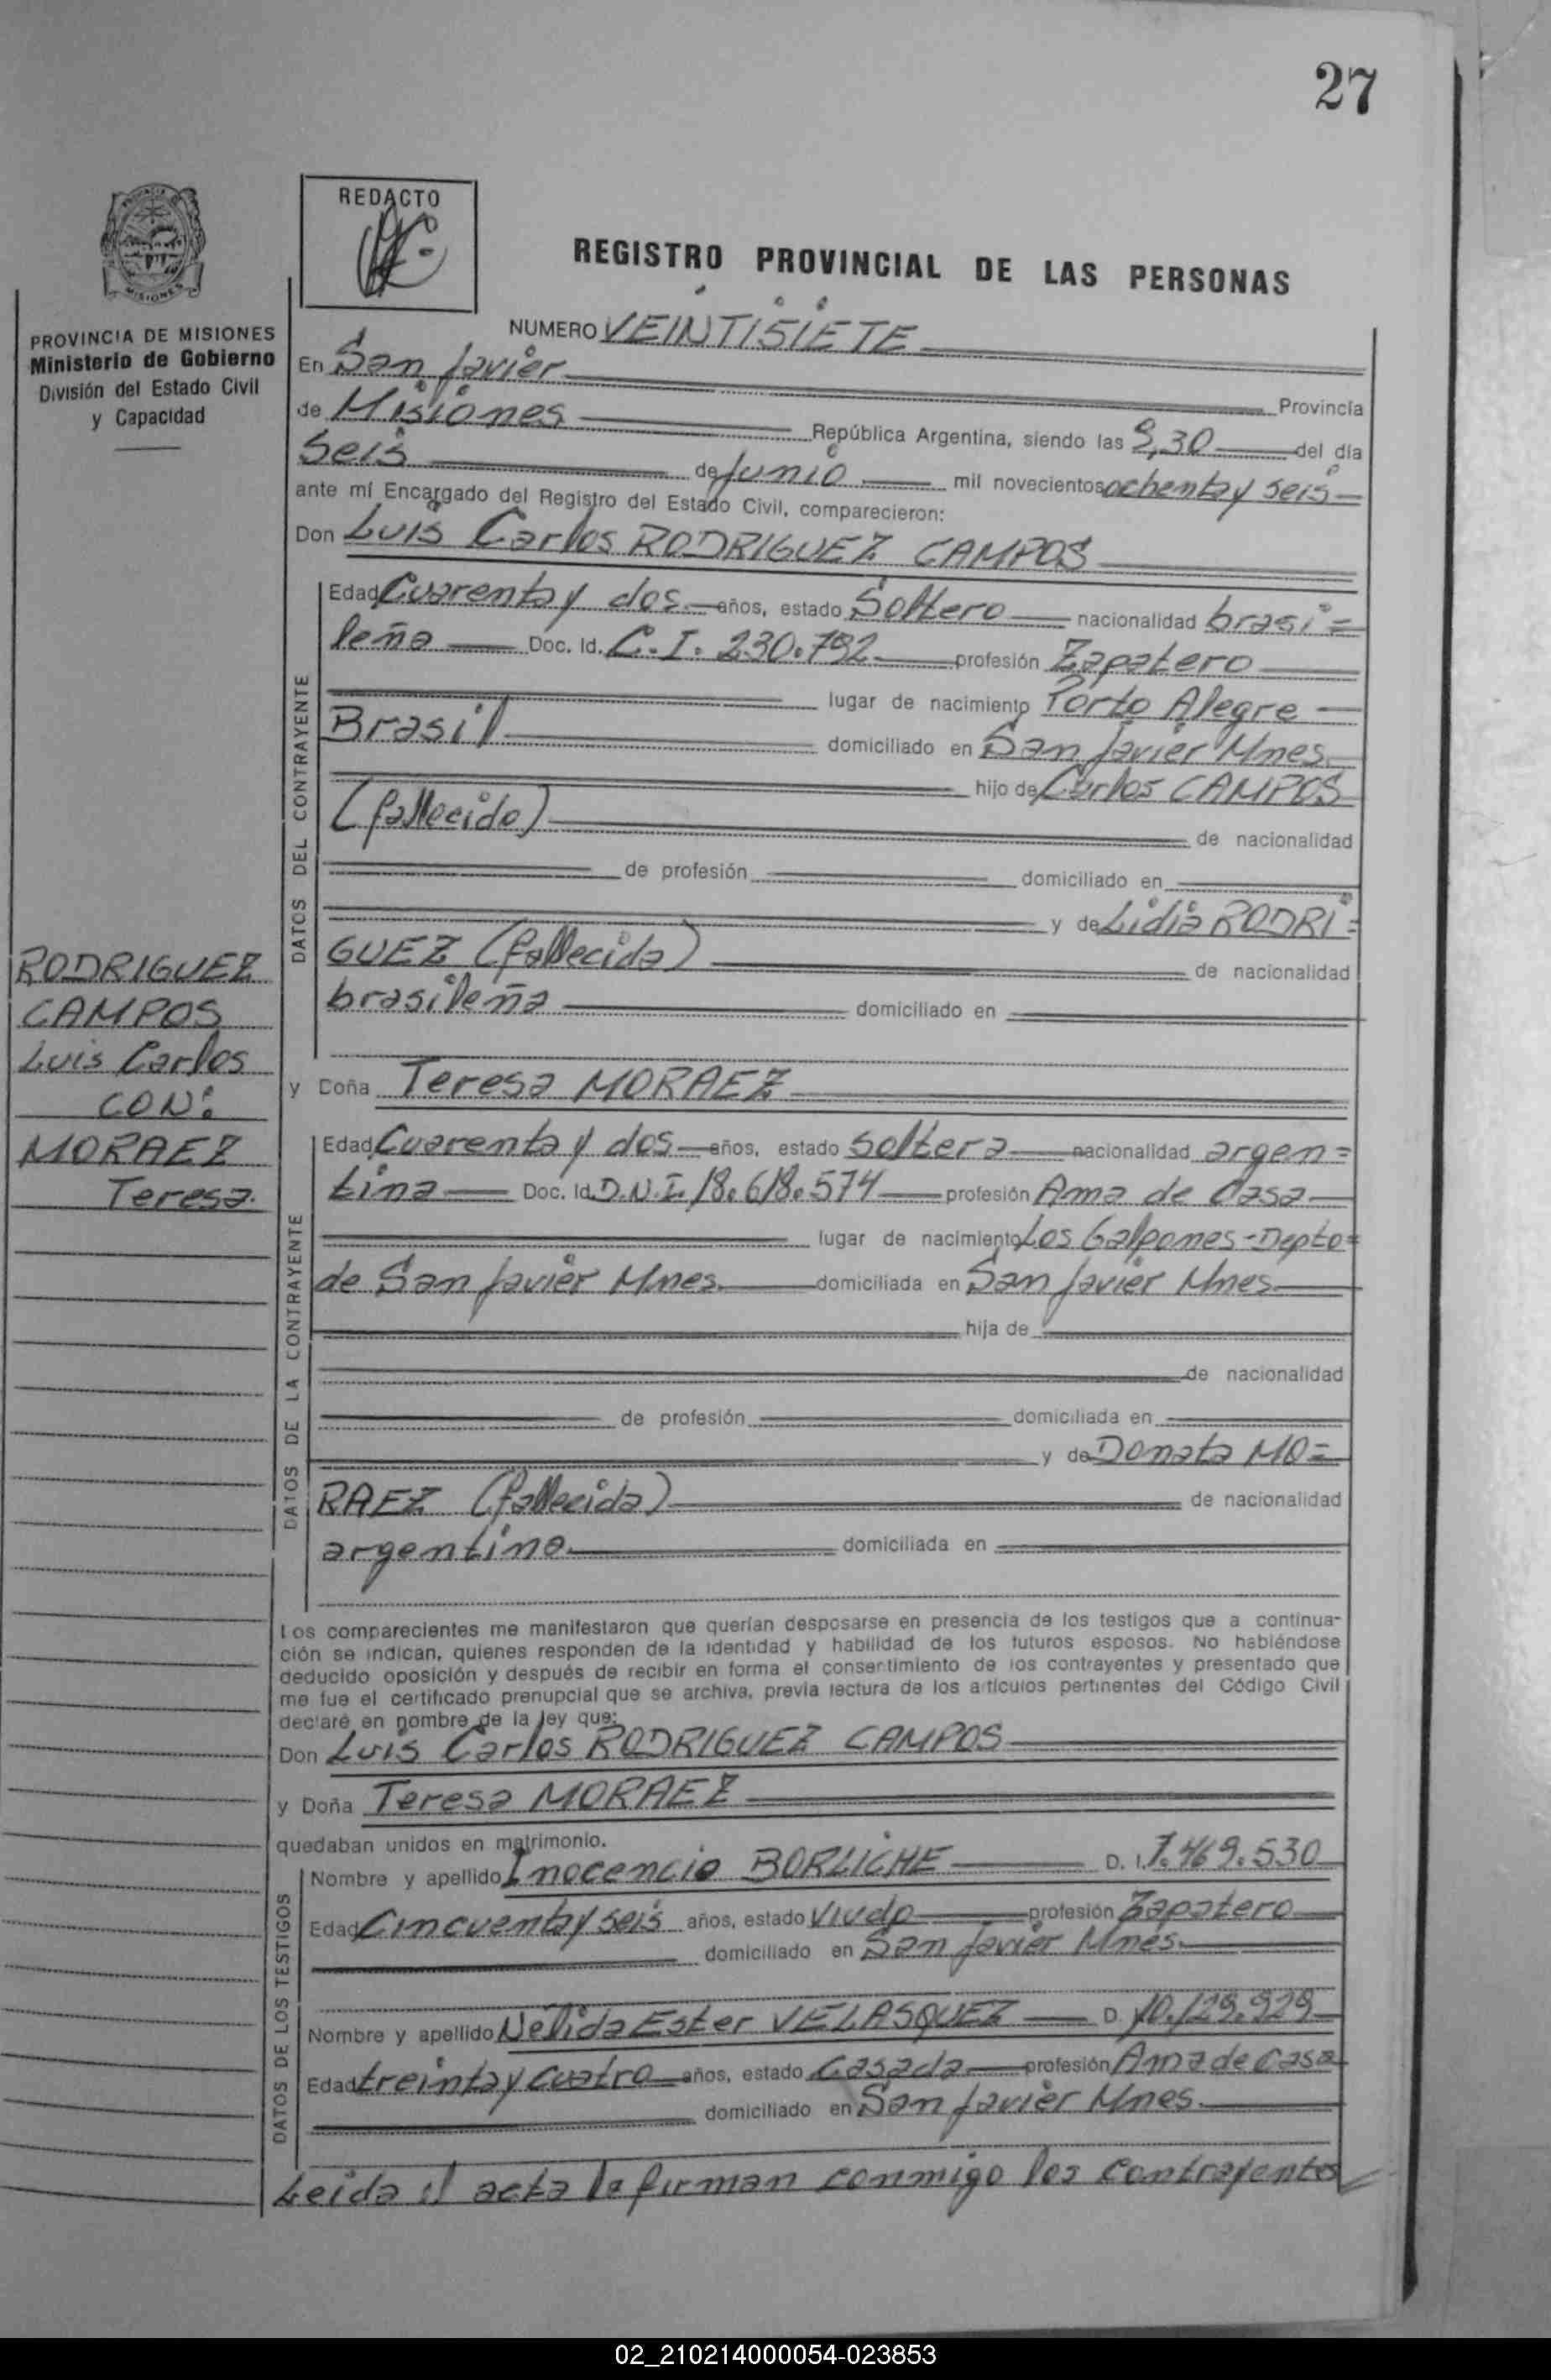 27
REDACTO
REGISTRO PROVINCIAL DE LAS PERSONAS
MISIONES
PROVINCIA DE MISIONES
Ministerio de Gobierno
División del Estado Civil
y Capacidad
NUMERO VEINTISIETE
En San Javier Provincia
de Misiones República Argentina, siendo las 9,30 del día
Seis de Junio mil novecientos ochenta y seis
ante mí Encargado del Registro del Estado Civil, comparecieron:
Don Luis Carlos RODRIGUEZ CAMPOS
DATOS DEL CONTRAYENTE
Edad Cuarenta y dos años, estado Soltero nacionalidad brasi=
leña Doc. Id. C.I. 230.792 profesión Zapatero
lugar de nacimiento Porto Alegre
Brasil domiciliado en San Javier Mnes.
hijo de Carlos CAMPOS
(fallecido) de nacionalidad
de profesión domiciliado en
y de Lidia RODRI=
GUEZ (fallecida) de nacionalidad
brasileña domiciliado en
RODRIGUEZ
CAMPOS
Luis Carlos
CON:
MORAEZ
Teresa.
y Doña Teresa MORAEZ
DATOS DE LA CONTRAYENTE
Edad Cuarenta y dos años, estado soltera nacionalidad argen=
tina Doc. Id. D.N.I. 18.618.574 profesión Ama de Casa
lugar de nacimiento Los Galpones-Depto=
de San Javier Mnes. domiciliada en San Javier Mnes
hija de
de nacionalidad
de profesión domiciliada en
y de Donata MO=
RAEZ (fallecida) de nacionalidad
argentina domiciliada en
Los comparecientes me manifestaron que querían desposarse en presencia de los testigos que a continua-
ción se indican, quienes responden de la identidad y habilidad de los futuros esposos. No habiéndose
deducido oposición y después de recibir en forma el consentimiento de los contrayentes y presentado que
me fue el certificado prenupcial que se archiva, previa lectura de los artículos pertinentes del Código Civil
declaré en nombre de la ley que:
Don Luis Carlos RODRIGUEZ CAMPOS
y Doña Teresa MORAEZ
quedaban unidos en matrimonio.
DATOS DE LOS TESTIGOS
Nombre y apellido Inocencio BORLICHE D. I. 7.469.530
Edad Cincuenta y seis años, estado viudo profesión Zapatero
domiciliado en San Javier Mnes.
Nombre y apellido Nélida Ester VELASQUEZ D. 10.129.929
Edad treinta y cuatro años, estado Casada profesión Ama de Casa
domiciliado en San Javier Mnes.
Leida el acta la firman conmigo los contrayentes
02_210214000054-023853